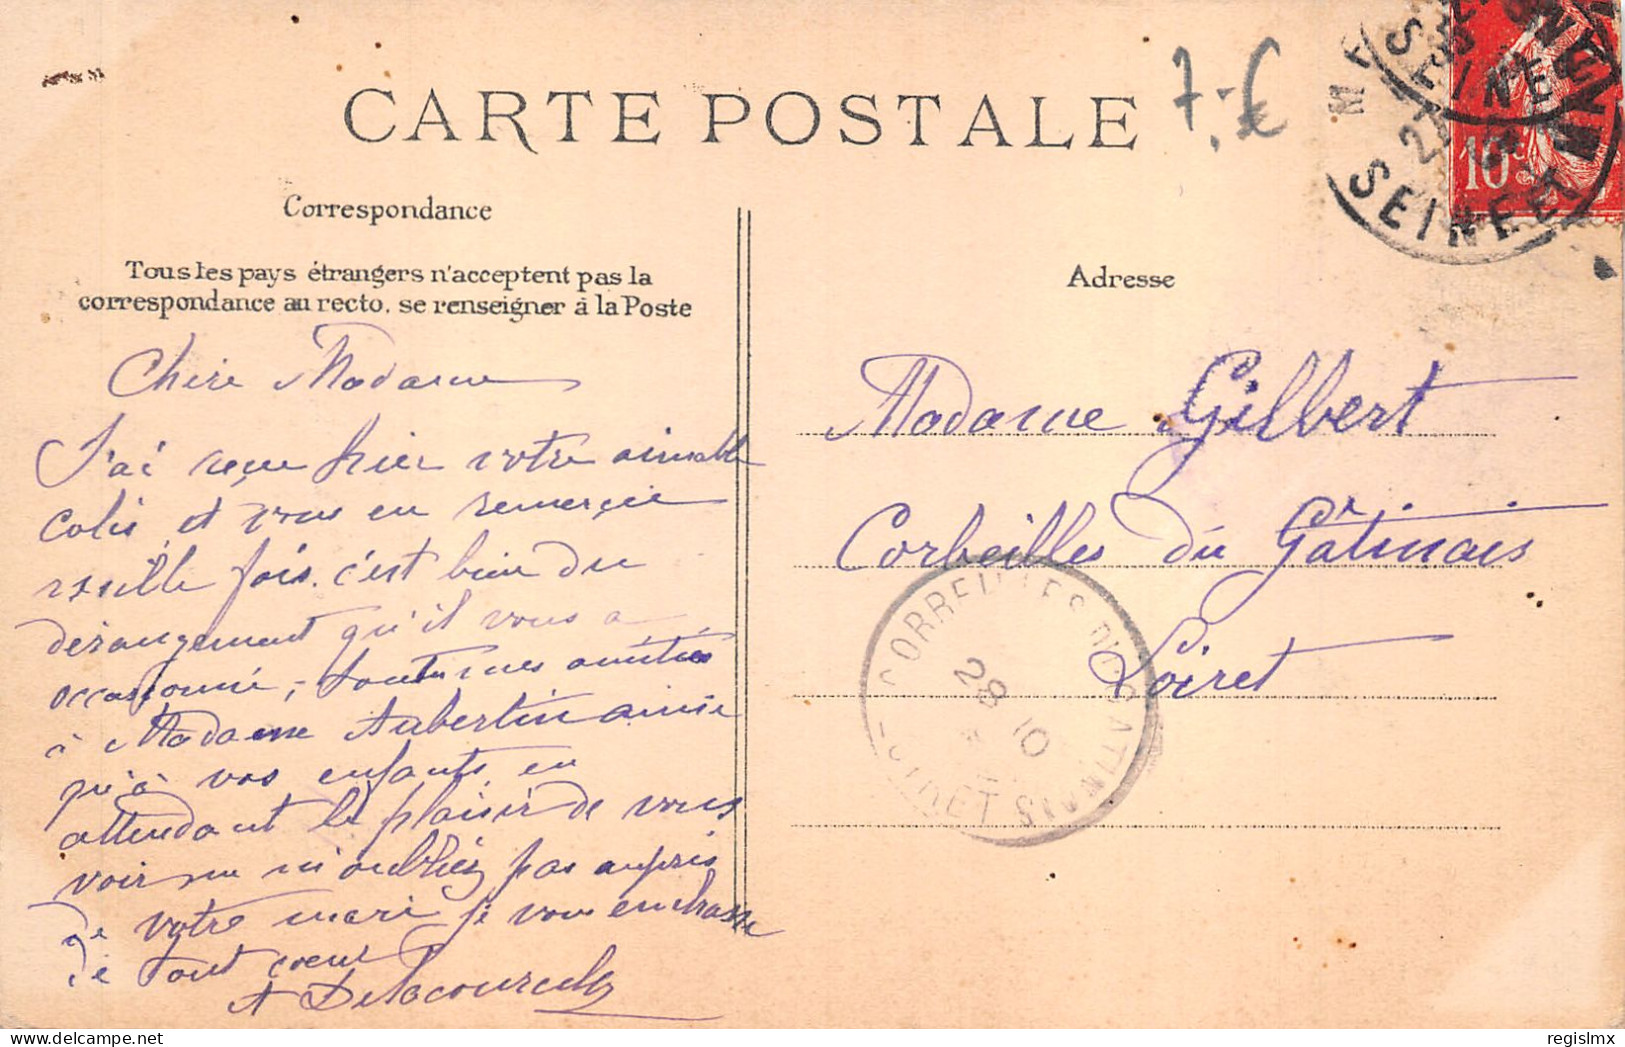 CARTE POSTALE
7,-€
Correspondance
Tous les pays étrangers n'acceptent pas la
correspondance au recto, se renseigner à la Poste
Adresse
10c
SEINE ET
Chère Madame
J'ai reçu hier votre aimable
colis et vous en remercie
mille fois. c'est bien du
dérangement qu'il vous a
occasionné, toutes mes amitiés
à Madame Aubertin ainsi
qu'à vos enfants, en
attendant le plaisir de vous
voir ne m'oubliez pas auprès
de votre mari je vous embrasse
de tout coeur
Madame Gilbert
Corbeilles du Gâtinais
Loiret
CORBEILLES DU GATINAIS
28 10
LOIRET
regislmx
delcampe.net